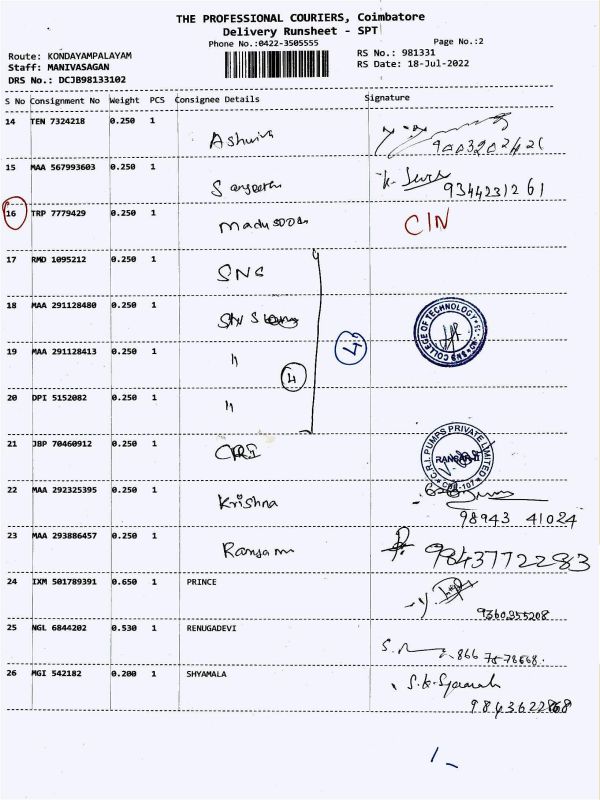 THE PROFESSIONAL COURIERS, Coimbatore
Delivery Runsheet - SPT
Phone No.:0422-3505555
Page No.:2
Route: KONDAYAMPALAYAM
Staff: MANIVASAGAN
DRS No.: DCJB98133102
RS No.: 981331
RS Date: 18-Jul-2022
S No Consignment No Weight PCS Consignee Details Signature
14 TEN 7324218 0.250 1
15 MAA 567993603 0.250 1 9344231261
16 TRP 7779429 0.250 1 CIN
17 RMD 1095212 0.250 1 SNS
18 MAA 291128480 0.250 1
19 MAA 291128413 0.250 1 "
20 DPI 5152082 0.250 1 "
4
4
SNS COLLEGE OF TECHNOLOGY
21 JBP 70460912 0.250 1 CRI
C.R.I. PUMPS PRIVATE LIMITED
22 MAA 292325395 0.250 1 Krishna 98943 41024
23 MAA 293886457 0.250 1 9843772283
24 IXM 501789391 0.650 1 PRINCE 9360955208
25 NGL 6844202 0.530 1 RENUGADEVI
26 MGI 542182 0.200 1 SHYAMALA